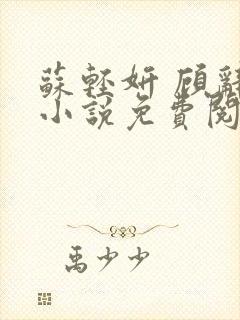 蘇輕妍 顧辭
小說免費閱
禹少少